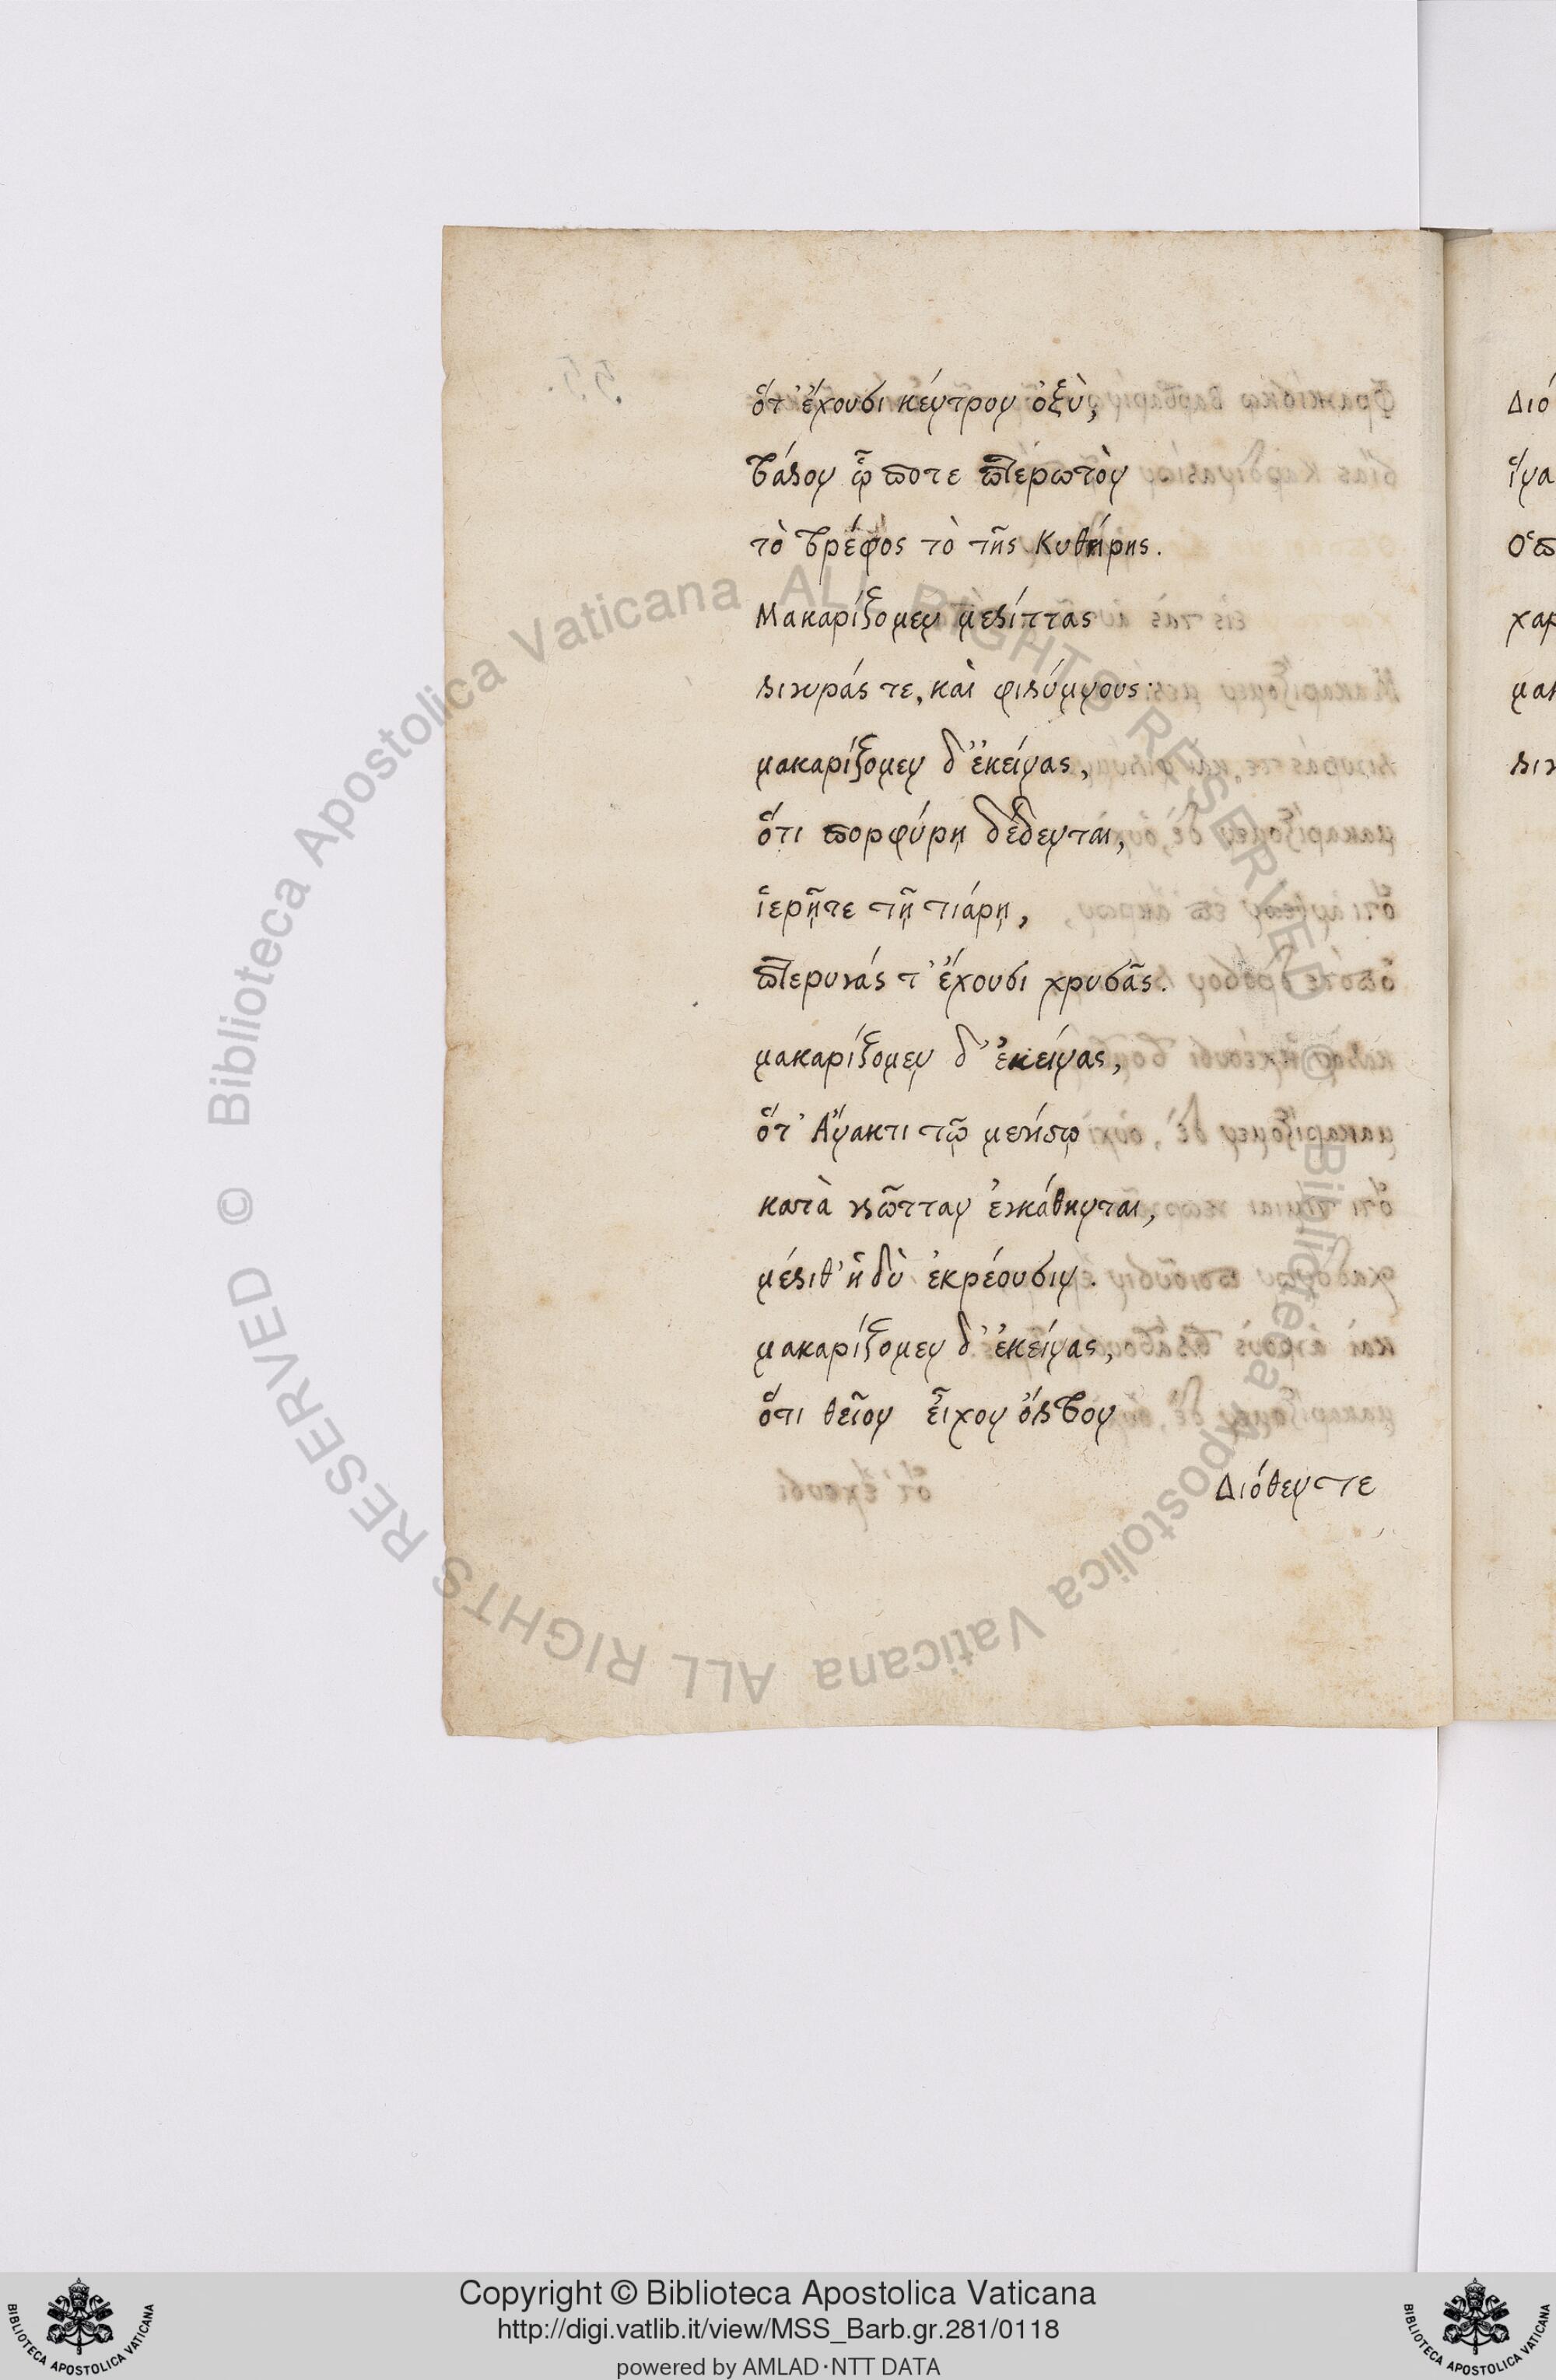 ὅτ' ἔχουσι κέντρον ὀξὺ,
βάλον ᾧ ποτε πτερωτὸν
τὸ βρέφος τὸ τῆς Κυθήρης.
Μακαρίζομεν μελίττας
λιγυράς τε, καὶ φιλύμνους·
μακαρίζομεν δ' ἐκείνας,
ὅτι πορφύρῃ δέδενται,
ἱερῇτε τῇ τιάρῃ,
πτερυγάς τ' ἔχουσι χρυσᾶς.
μακαρίζομεν δ' ἐκείνας,
ὅτ' Ἄνακτι τῷ μεγίστῳ
κατὰ γλῶτταν ἐγκάθηνται,
μέλιθ' ἡδὺ ἐκρέουσιν.
μακαρίζομεν δ' ἐκείνας,
ὅτι θεῖον εἶχον ὄλβον
Διόθεν τε
Διό
ἵνα
χαρ
μακ
λιγ
Copyright © Biblioteca Apostolica Vaticana
http://digi.vatlib.it/view/MSS_Barb.gr.281/0118
powered by AMLAD·NTT DATA
BIBLIOTECA APOSTOLICA VATICANA
BIBLIOTECA APOSTOLICA VATICANA
© Biblioteca Apostolica Vaticana ALL RIGHTS RESERVED
© Biblioteca Apostolica Vaticana ALL RIGHTS RESERVED